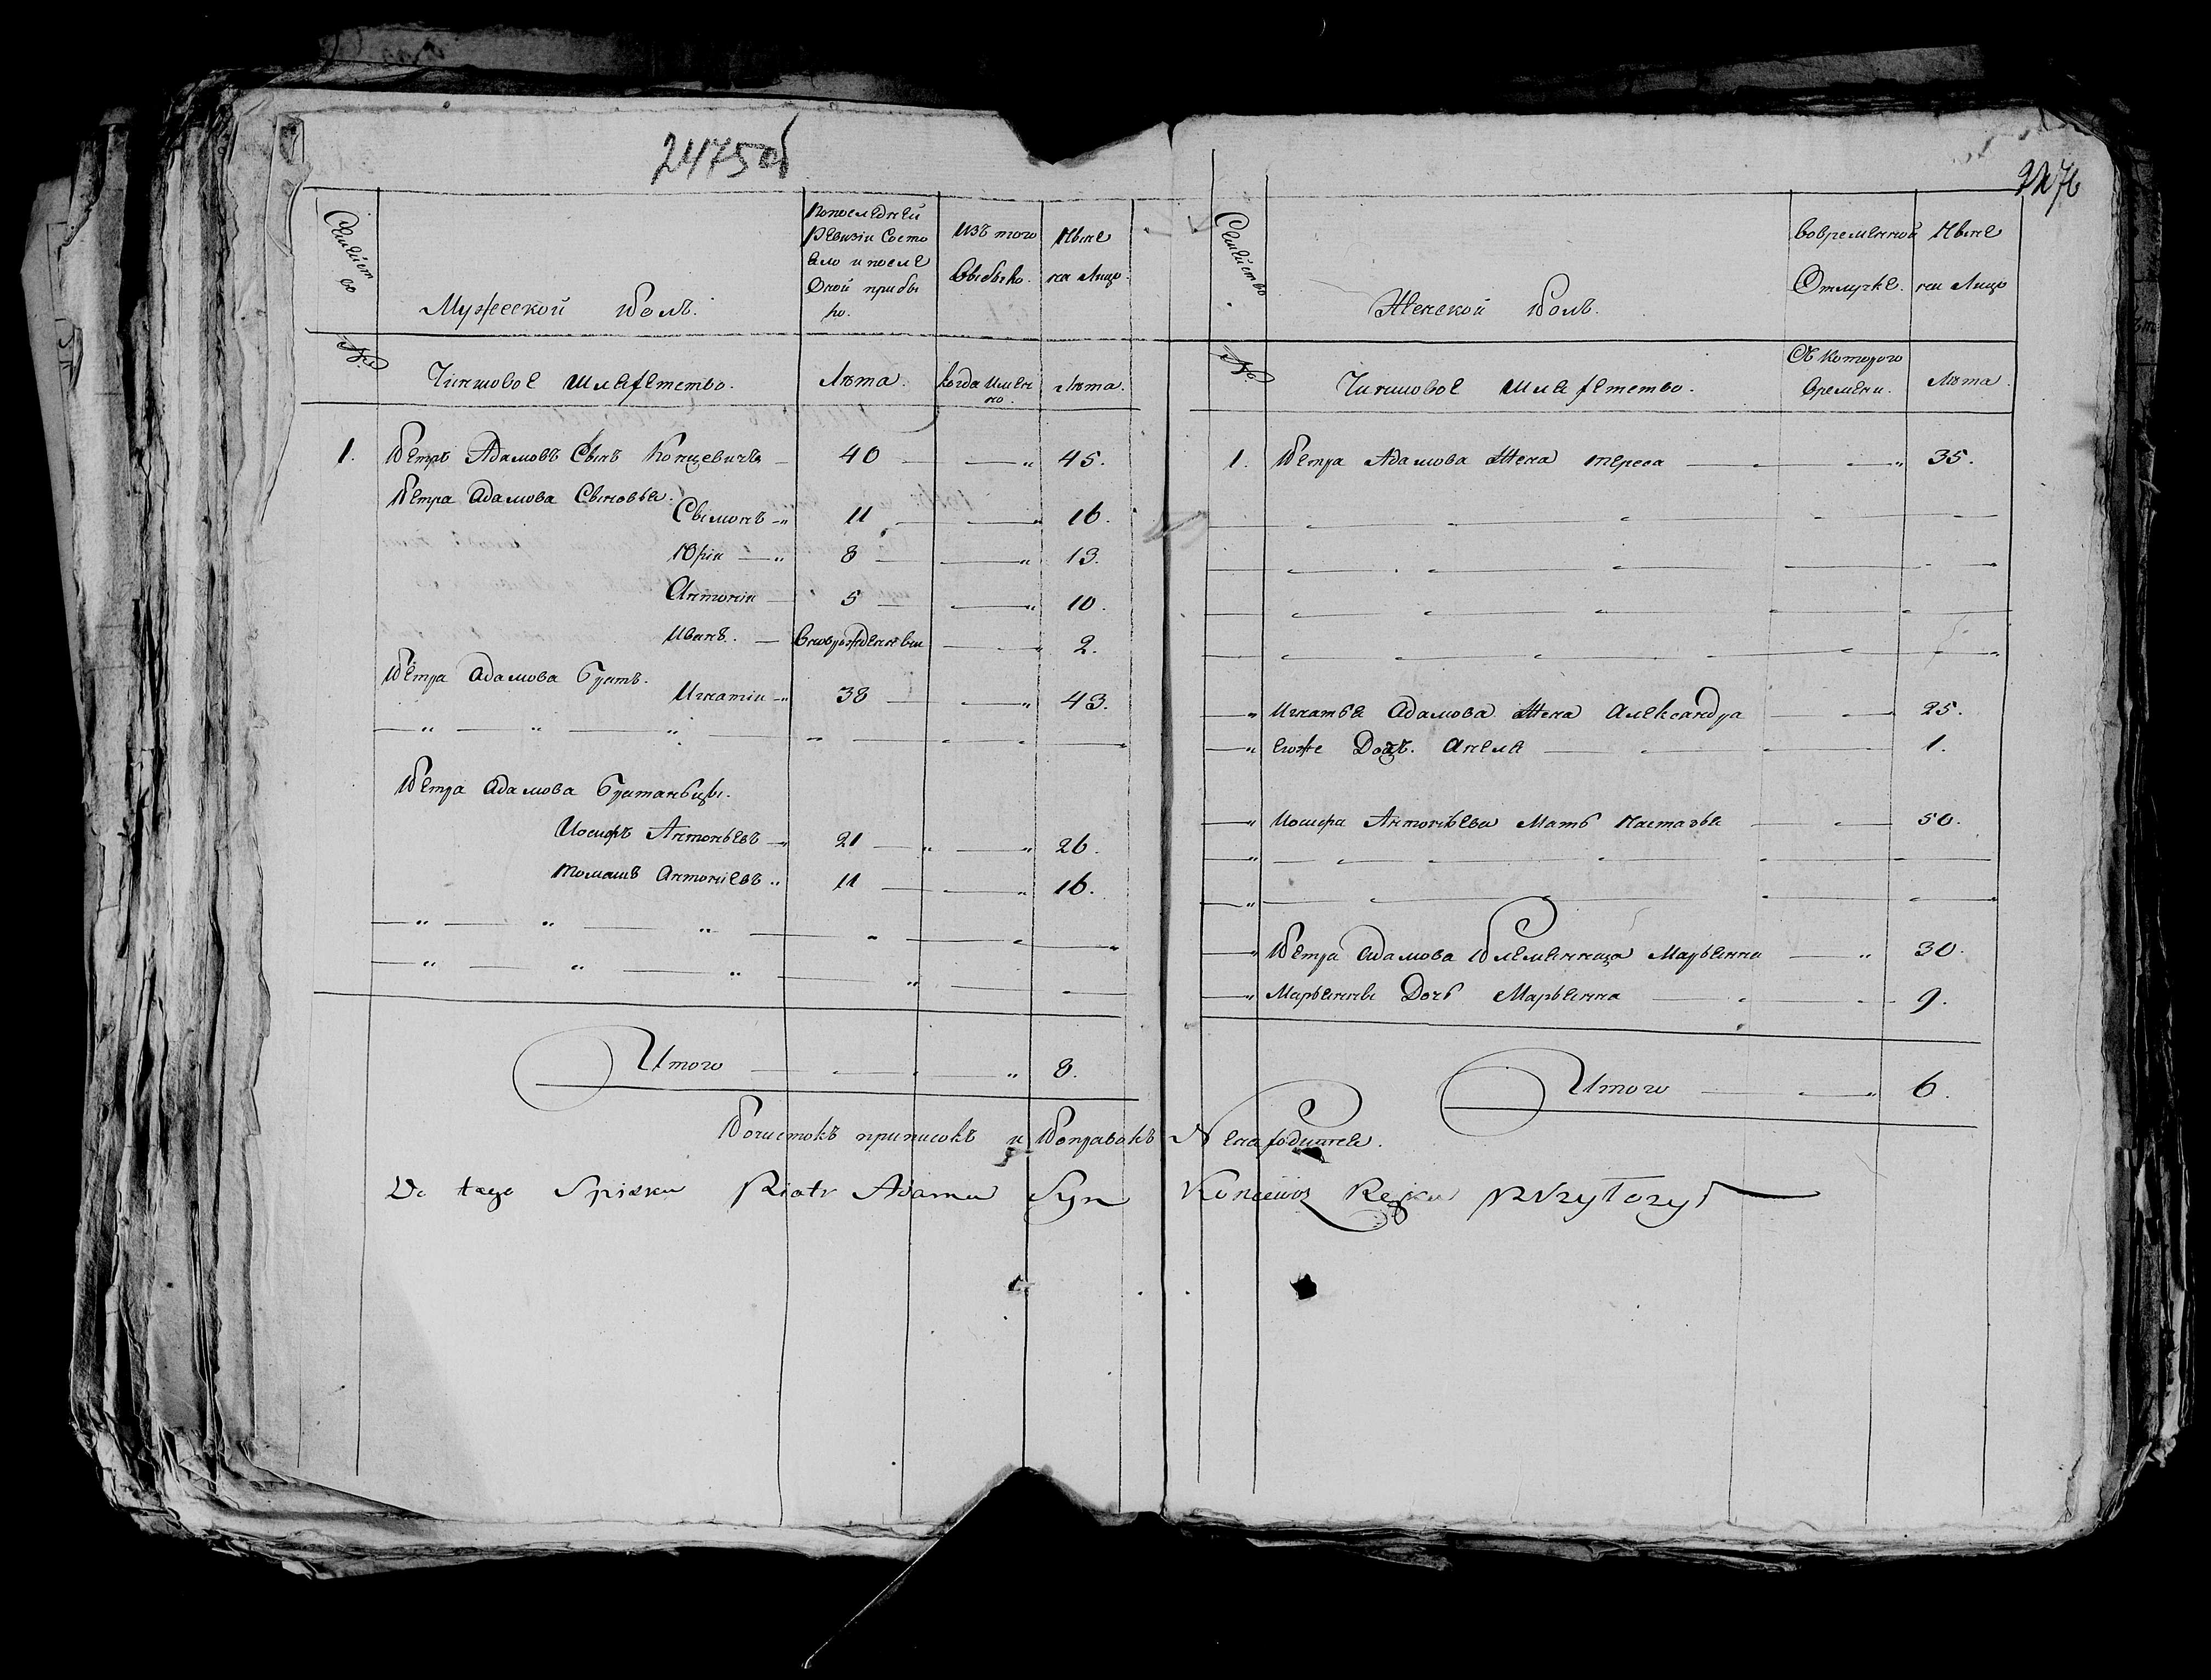 2475об
Семейство
Мужеской Полъ.
Попоследней Ревизіи Состояло и после Оной прибыло.
Изъ того Выбыло.
Ныне на Лицо.
№
Чиншовое Шляхетство.
Лѣта.
Когда Именно.
Лѣта.
1. Петръ Адамовъ Сынъ Концевичъ 40 45.
Петра Адамова Сыновья.
Сымонъ 11 16.
Юрій 8 13.
Антоній 5 10.
Иванъ. Вновьрожденный 2.
Петра Адамова Братъ.
Игнатій 38 43.
Петра Адамова Братаньцы.
Иосифъ Антоньевъ 21 26.
Томашъ Антоніевъ 11 16.
Итого 8.
2476
Семейство
Женской Полъ.
Вовременной Отлучке.
Ныне на Лицо
№
Чиншовое Шляхетство.
Съ Которого Времени.
Лѣта.
1. Петра Адамова Жена Тереса 35.
Игнатья Адамова Жена Александра 25.
Егоже Дочь. Анеля 1.
Иосифа Антоньева Мать Настазья 50.
Петра Адамова Племянница Марьянна 30.
Марьянны Дочь Марьянна 9.
Итого 6.
Почистокъ приписокъ и Поправокъ Ненаходится.
Do tego Spisku Piotr Adama Syn Koncewicz Ręką przyłożył